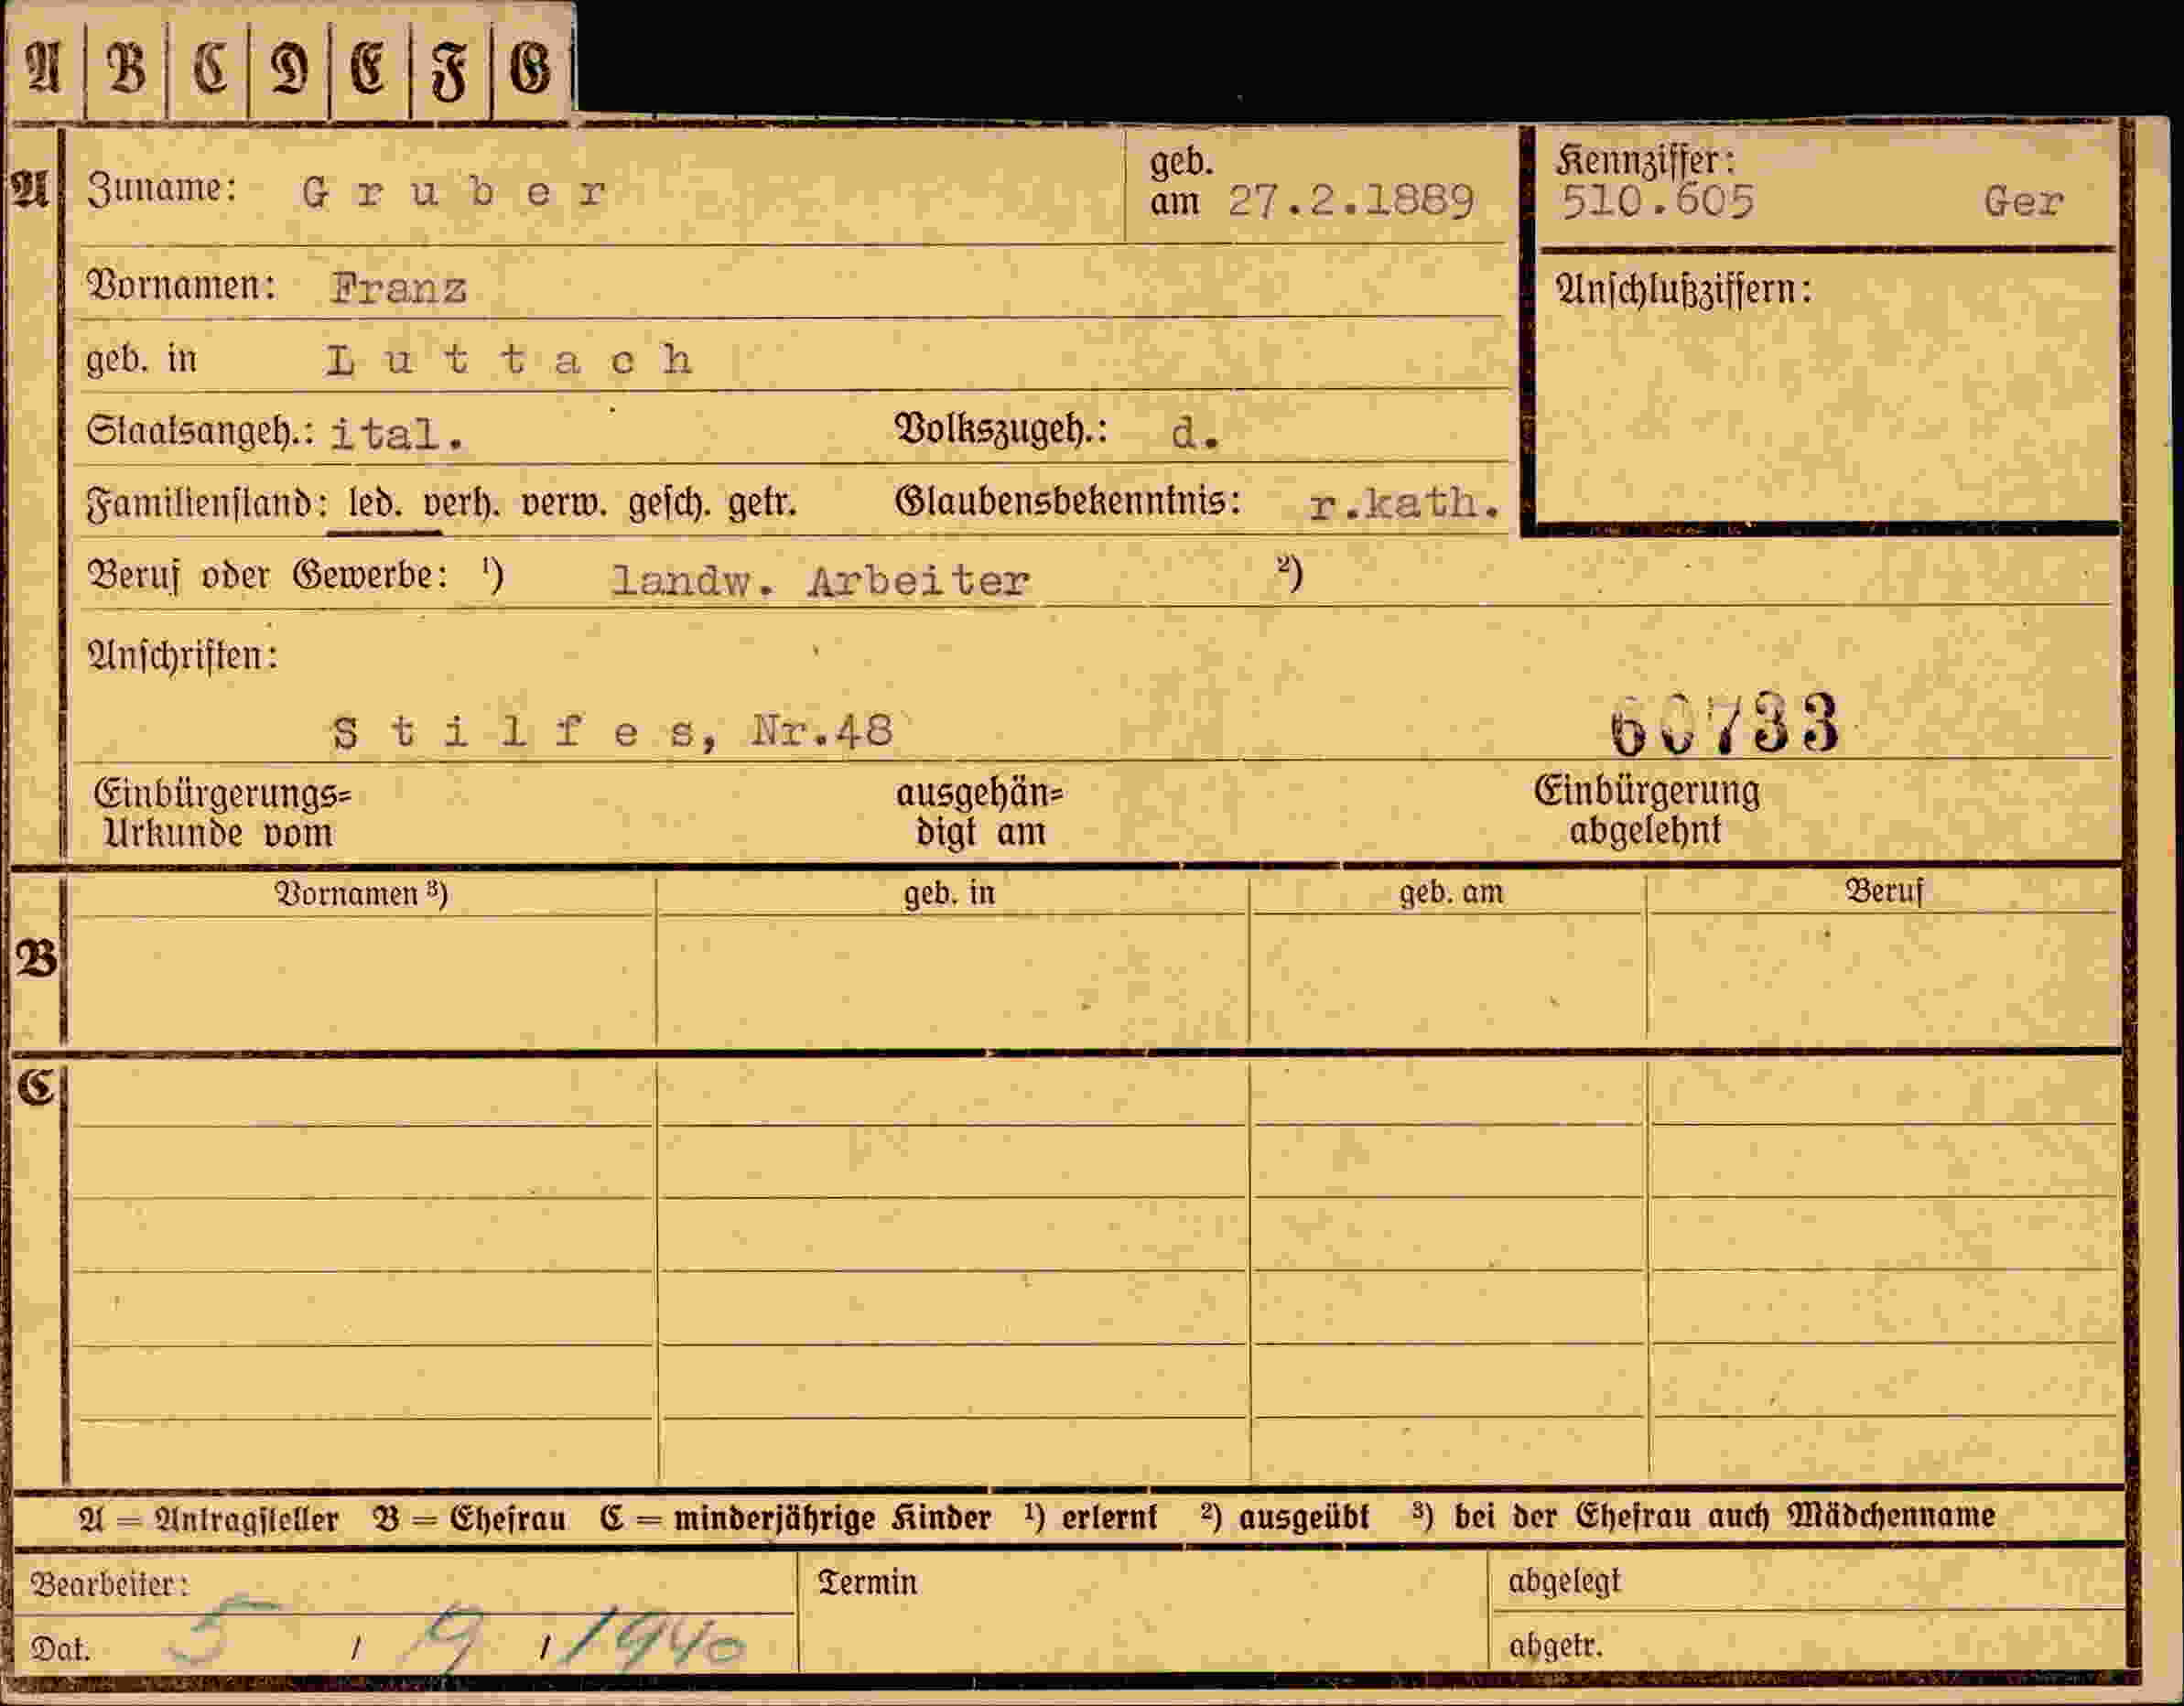 A B C D E F G
A Zuname: Gruber geb. am 27.2.1889 Kennziffer: 510.605 Ger
Vornamen: Franz Anschlußziffern:
geb. in Luttach
Staatsangeh.: ital. Volkszugeh.: d.
Familienstand: led. verh. verw. gesch. getr. Glaubensbekenntnis: r.kath.
Beruf oder Gewerbe: ¹) landw. Arbeiter ²)
Anschriften:
Stilfes, Nr.48 60733
Einbürgerungs= ausgehän= Einbürgerung
Urkunde vom digt am abgelehnt
Vornamen ³) geb. in geb. am Beruf
B
C
A = Antragsteller B = Ehefrau C = minderjährige Kinder ¹) erlernt ²) ausgeübt ³) bei der Ehefrau auch Mädchenname
Bearbeiter: Termin abgelegt
Dat. 5 / 9 / 1940 abgetr.